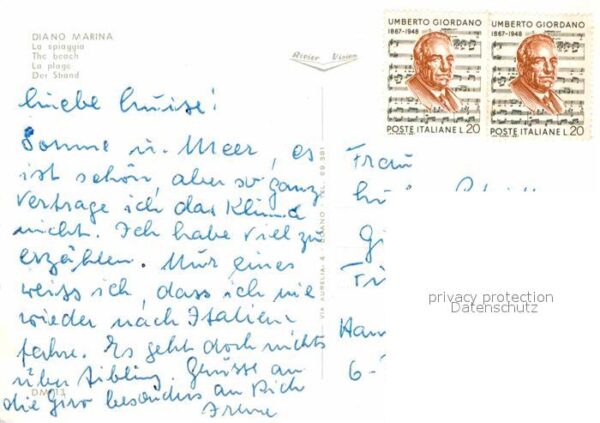 DIANO MARINA
La spiaggia
The beach
La plage
Der Strand
Liebe Luise!
Sonne u. Meer, es
ist schön, aber so ganz
vertrage ich das Klima
nicht. Ich habe viel zu
erzählen. Nur eines
weiss ich, dass ich nie
wieder nach Italien
fahre. Es geht doch nichts
über Aibling. Grüsse an
die Giro besonders an Dich
Irene
VIA AURELIA, 4
TEL. 69.581
UMBERTO GIORDANO
1867-1948
POSTE ITALIANE L.20
UMBERTO GIORDANO
1867-1948
POSTE ITALIANE L.20
Frau
privacy protection
Datenschutz